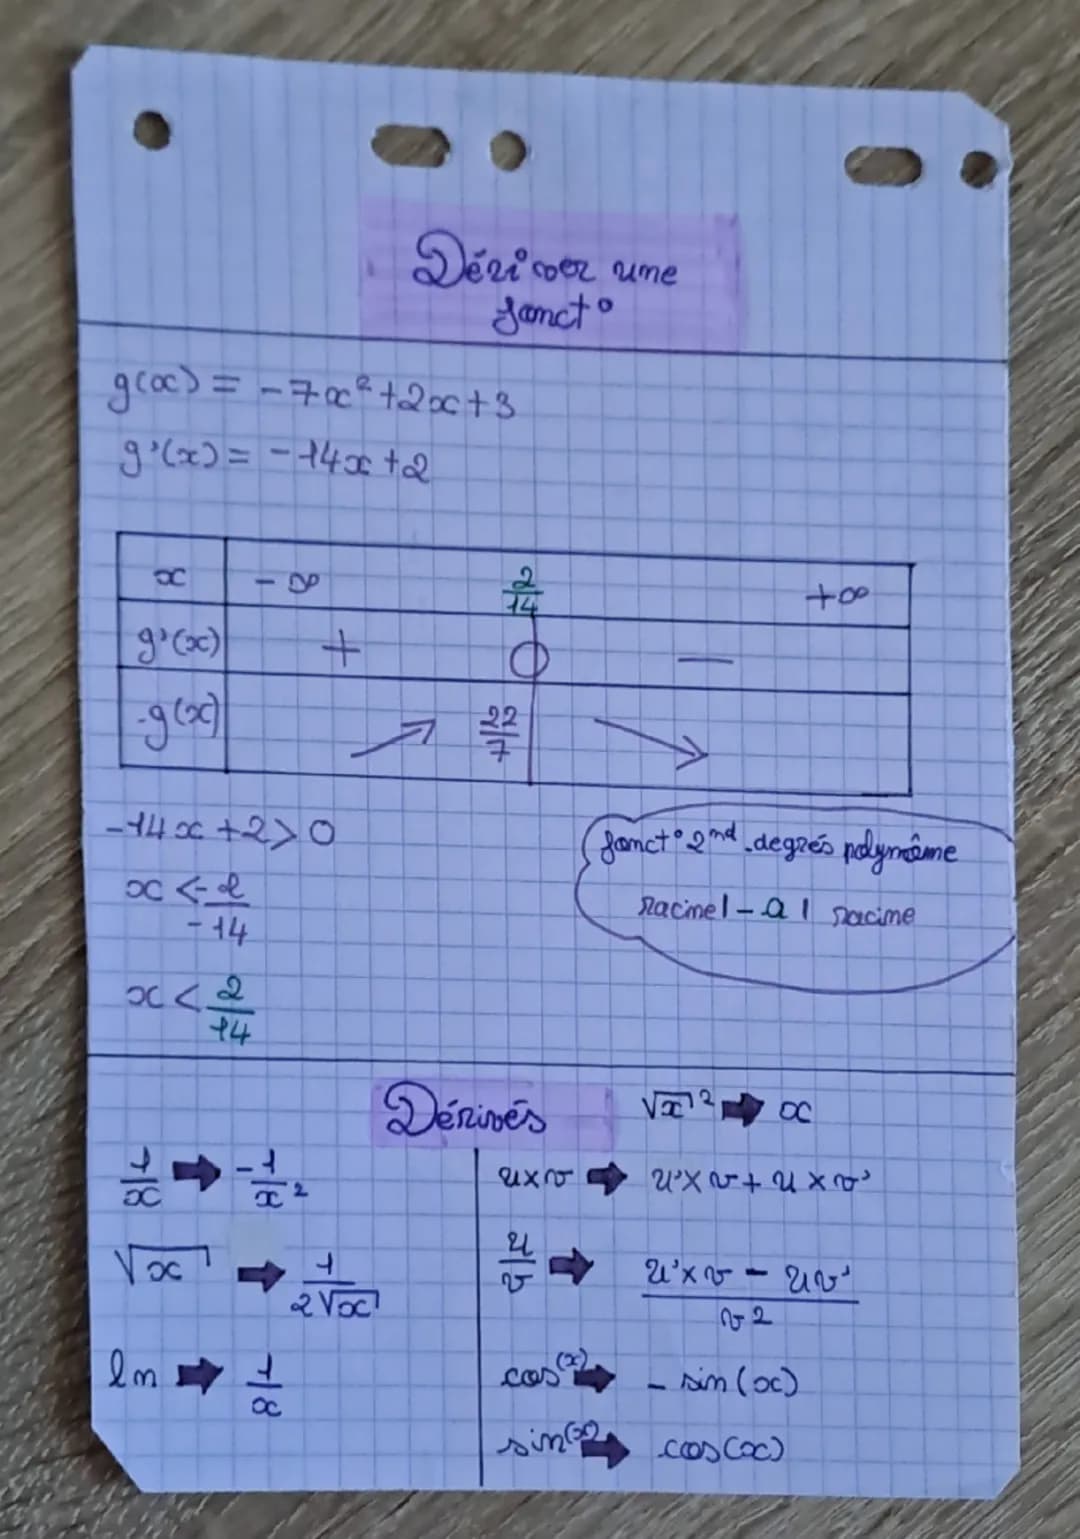 Dériver une
fonct°
g(x) = -7x² +2x+3
g'(x) = -14x +2
x -∞ 2/14 +∞
g'(x) + 0 -
g(x) ↗ 22/7 ↘
-14x +2 > 0
x < -2/-14
x < 2/14
fonct° 2nd degrés polynôme
racine | -a | racine
Dérivés
√x² ➡ x
1/x ➡ -1/x²
√x ➡ 1/2√x
ln ➡ 1/x
u×v ➡ u'×v + u×v'
u/v ➡ u'×v - uv'/v²
cos(x) ➡ - sin(x)
sin(x) ➡ cos(x)